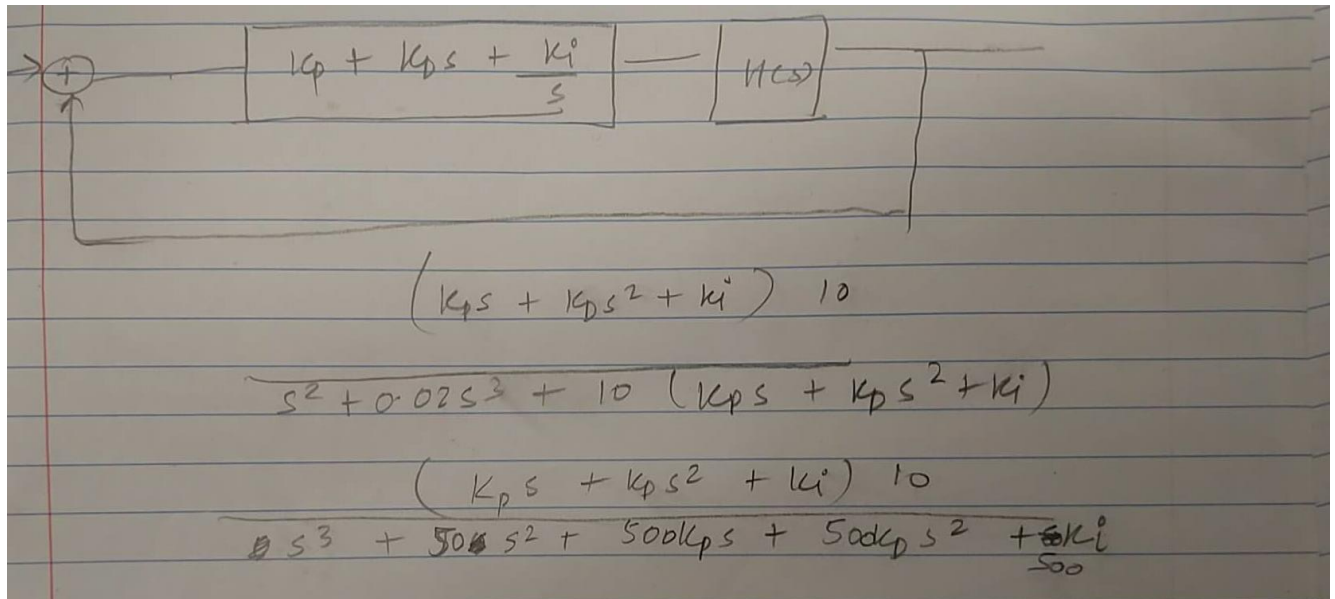 + Kp + KDs + Ki/s H(s)
(Kps + KDs² + Ki) 10
s² + 0.02s³ + 10 (Kps + KDs² + Ki)
(Kps + KDs² + Ki) 10
s³ + 50s² + 500Kps + 500KDs² + 500Ki